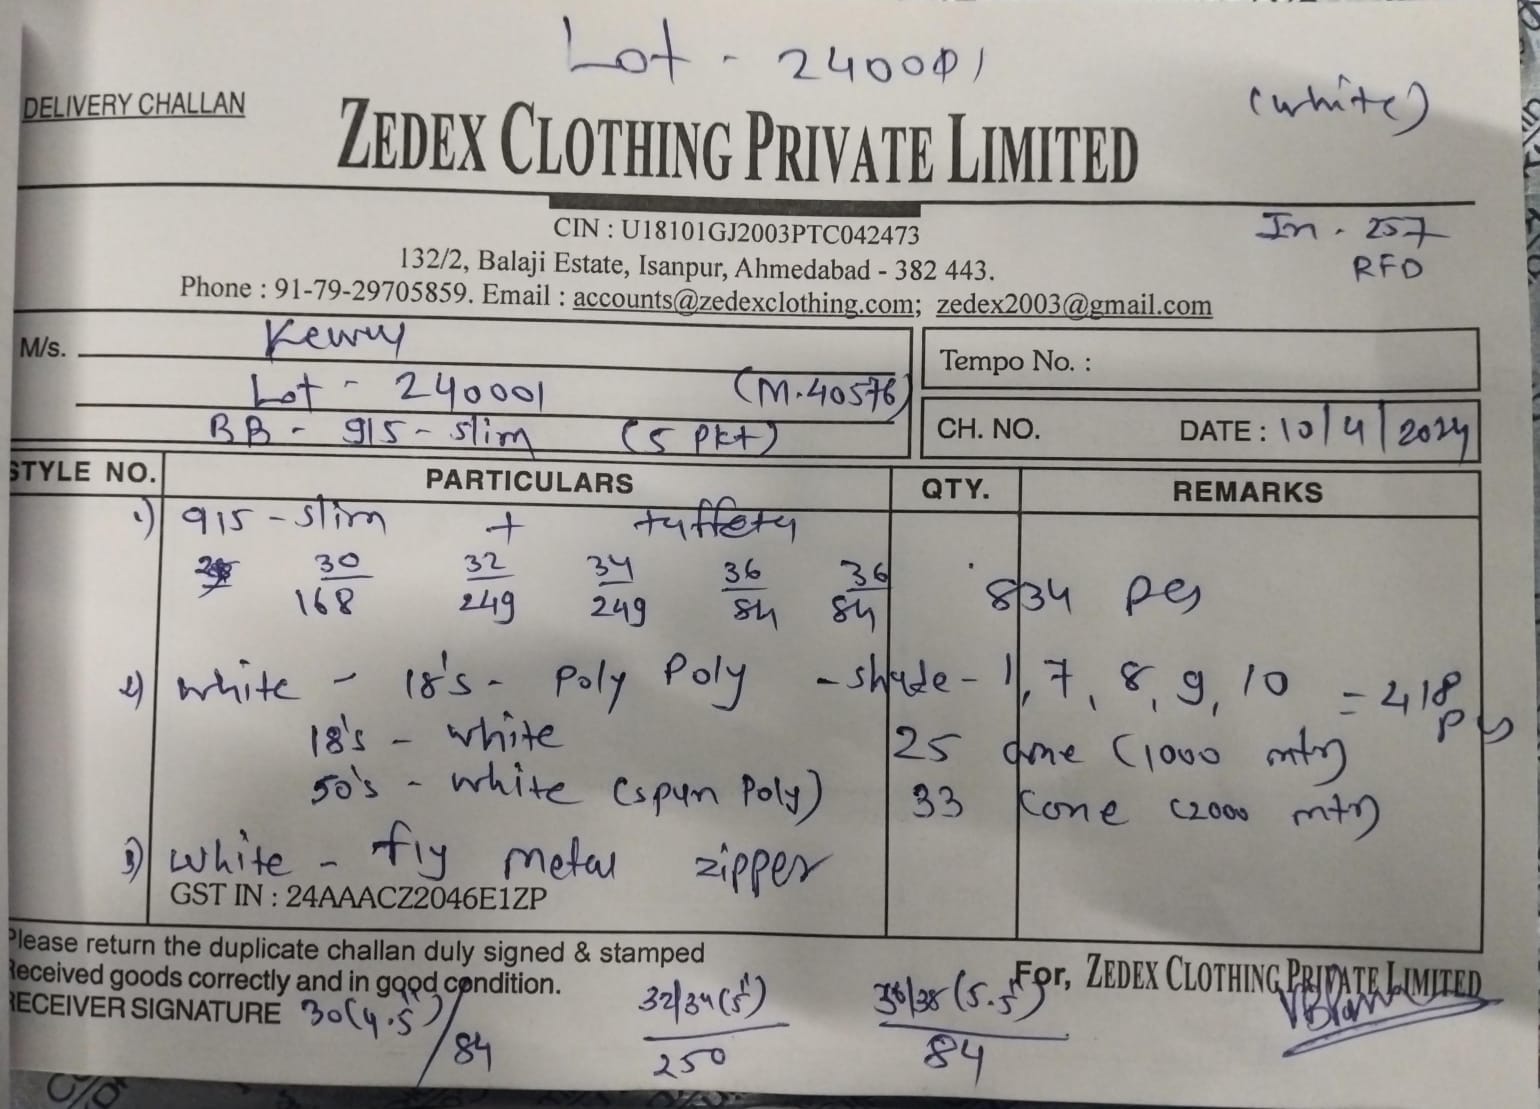 Lot - 240001
(white)
DELIVERY CHALLAN
ZEDEX CLOTHING PRIVATE LIMITED
CIN : U18101GJ2003PTC042473
In - 257
RFD
132/2, Balaji Estate, Isanpur, Ahmedabad - 382 443.
Phone : 91-79-29705859. Email : accounts@zedexclothing.com; zedex2003@gmail.com
M/s.
Tempo No. :
Lot - 240001 (M.40576)
BB - 915 - slim (5 Pkt)
CH. NO. DATE : 10/4/2024
STYLE NO. PARTICULARS QTY. REMARKS
1) 915 - slim + tuffety
30 32 34 36 36
168 249 249 84 84 834 pcs
2) white - 18's - Poly Poly - shade - 1, 7, 8, 9, 10 = 418 pcs
18's - white 25 cone (1000 mtr)
50's - white (spun Poly) 33 cone (2000 mtr)
3) white - fly metal zipper
GST IN : 24AAACZ2046E1ZP
Please return the duplicate challan duly signed & stamped
Received goods correctly and in good condition.
For, ZEDEX CLOTHING PRIVATE LIMITED
RECEIVER SIGNATURE 30(4.5")/84
32/34(5") 36/38(5.5")
250 84